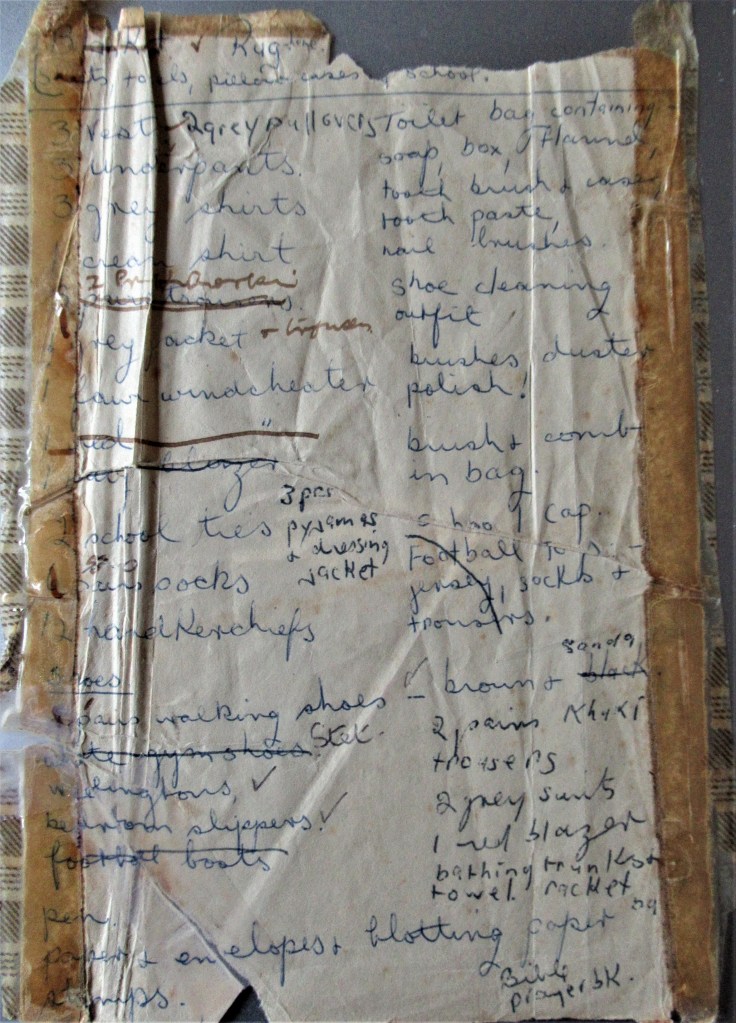 Rug
sheets towels, pillow cases school.
3 vest 2 grey pullovers
3 underpants.
3 grey shirts
1 cream shirt
2 Pr
trousers.
grey jacket + trousers
1 fawn windcheater
1 red "
1 blazer
2 school ties
3 prs
pyjamas
+ dressing
jacket
pairs socks
12 handkerchiefs
Shoes
pairs walking shoes – brown + black
sand
white gym shoes. Stet.
wellingtons,
bedroom slippers.
football boots
pen.
paper + envelopes + blotting paper
stamps.
Toilet bag containing
soap, box, flannel,
tooth brush + case,
tooth paste,
nail brushes.
shoe cleaning
outfit
brushes duster
polish!
brush + comb
in bag.
school cap.
Football
jersey, socks +
trousers.
2 pairs KhaKi
trousers
2 grey suits
1 red blazer
bathing trunks +
towel. racket
Bible
prayer bK.